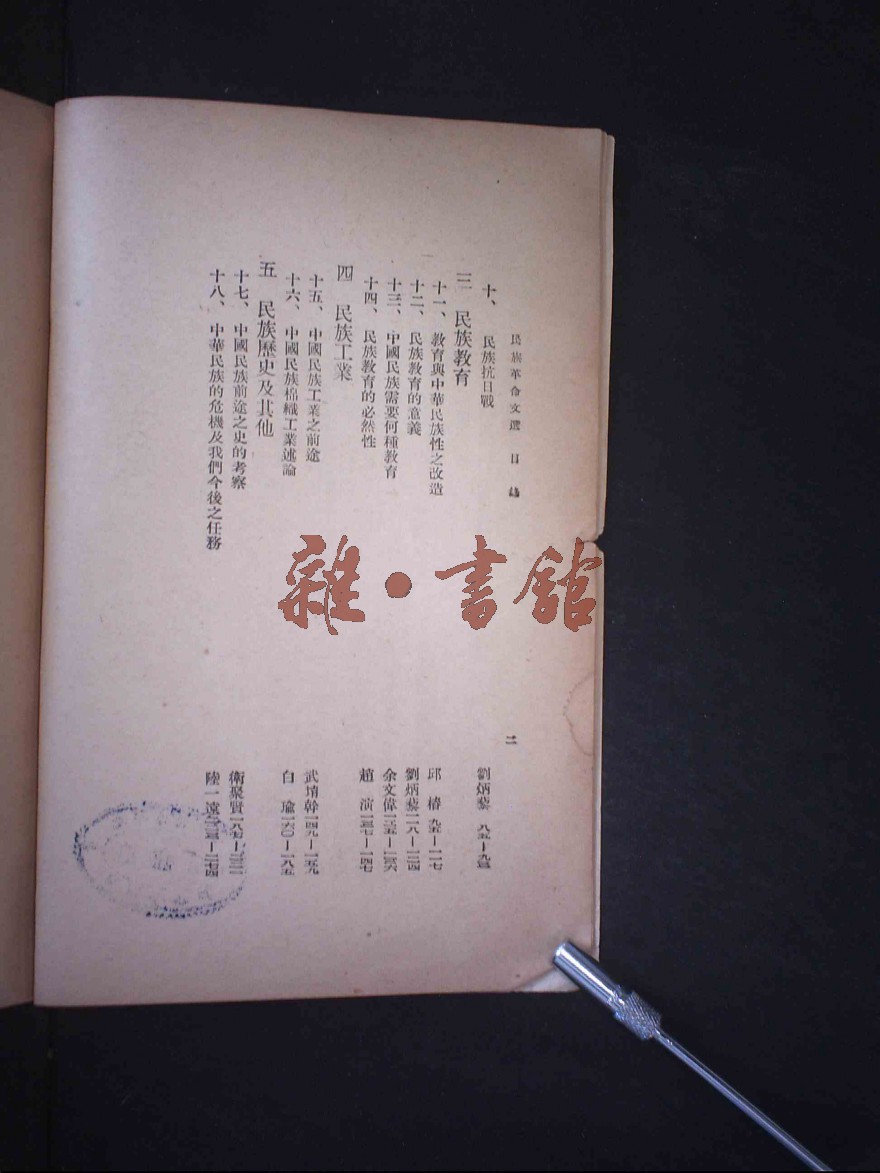 民族革命文選 目錄 二
十、 民族抗日戰 劉炳藜 八五—九三
三 民族教育
十一、 教育與中華民族性之改造 邱椿 九五—一一七
十二、 民族教育的意義 劉炳藜 一一八—一二四
十三、 中國民族需要何種教育 余文偉 一二五—一三六
十四、 民族教育的必然性 趙演 一三七—一四七
四 民族工業
十五、 中國民族工業之前途 武堉幹 一四九—一五九
十六、 中國民族棉織工業述論 白瑜 一六〇—一八五
五 民族歷史及其他
十七、 中國民族前途之史的考察 衛聚賢 一八七—
十八、 中華民族的危機及我們今後之任務 陸一遠 —二七四
雜·書館